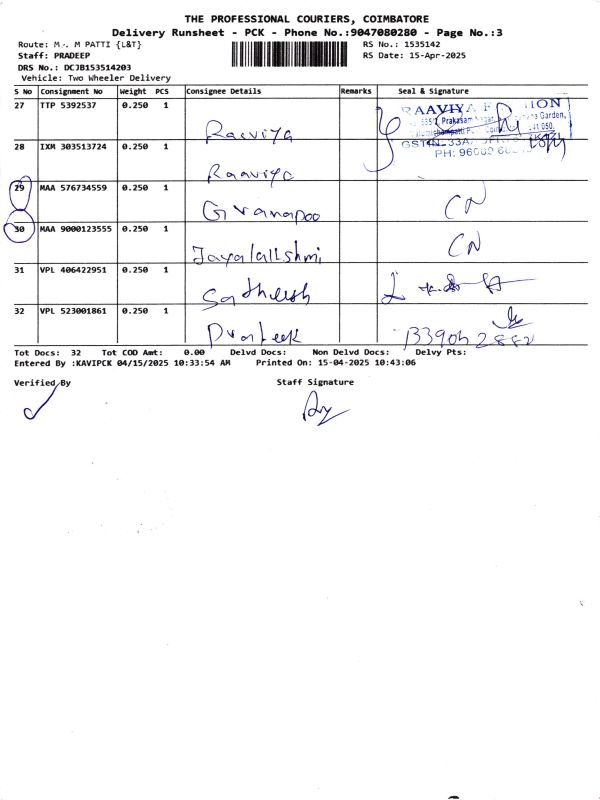 THE PROFESSIONAL COURIERS, COIMBATORE
Delivery Runsheet - PCK - Phone No.:9047080280 - Page No.:3
Route: M.. M PATTI {L&T}
RS No.: 1535142
Staff: PRADEEP
RS Date: 15-Apr-2025
DRS No.: DCJB153514203
Vehicle: Two Wheeler Delivery
S No Consignment No Weight PCS Consignee Details Remarks Seal & Signature
27 TTP 5392537 0.250 1 Raaviya
RAAVIYA
Prakasam Nagar, Garden,
GSTIN
PH:
28 IXM 303513724 0.250 1 Raaviya
29 MAA 576734559 0.250 1 CN
30 MAA 9000123555 0.250 1 CN
31 VPL 406422951 0.250 1 Satheesh
32 VPL 523001861 0.250 1 Prateek
Tot Docs: 32 Tot COD Amt: 0.00 Delvd Docs: Non Delvd Docs: Delvy Pts:
Entered By :KAVIPCK 04/15/2025 10:33:54 AM Printed On: 15-04-2025 10:43:06
Verified By Staff Signature